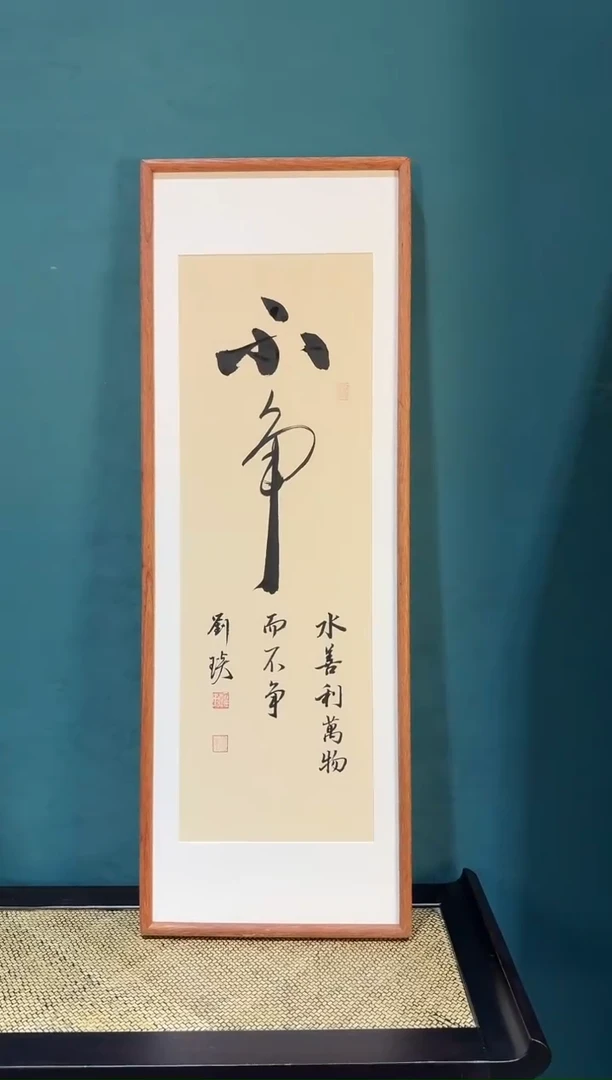 不争
水善利萬物
而不争
劉琰